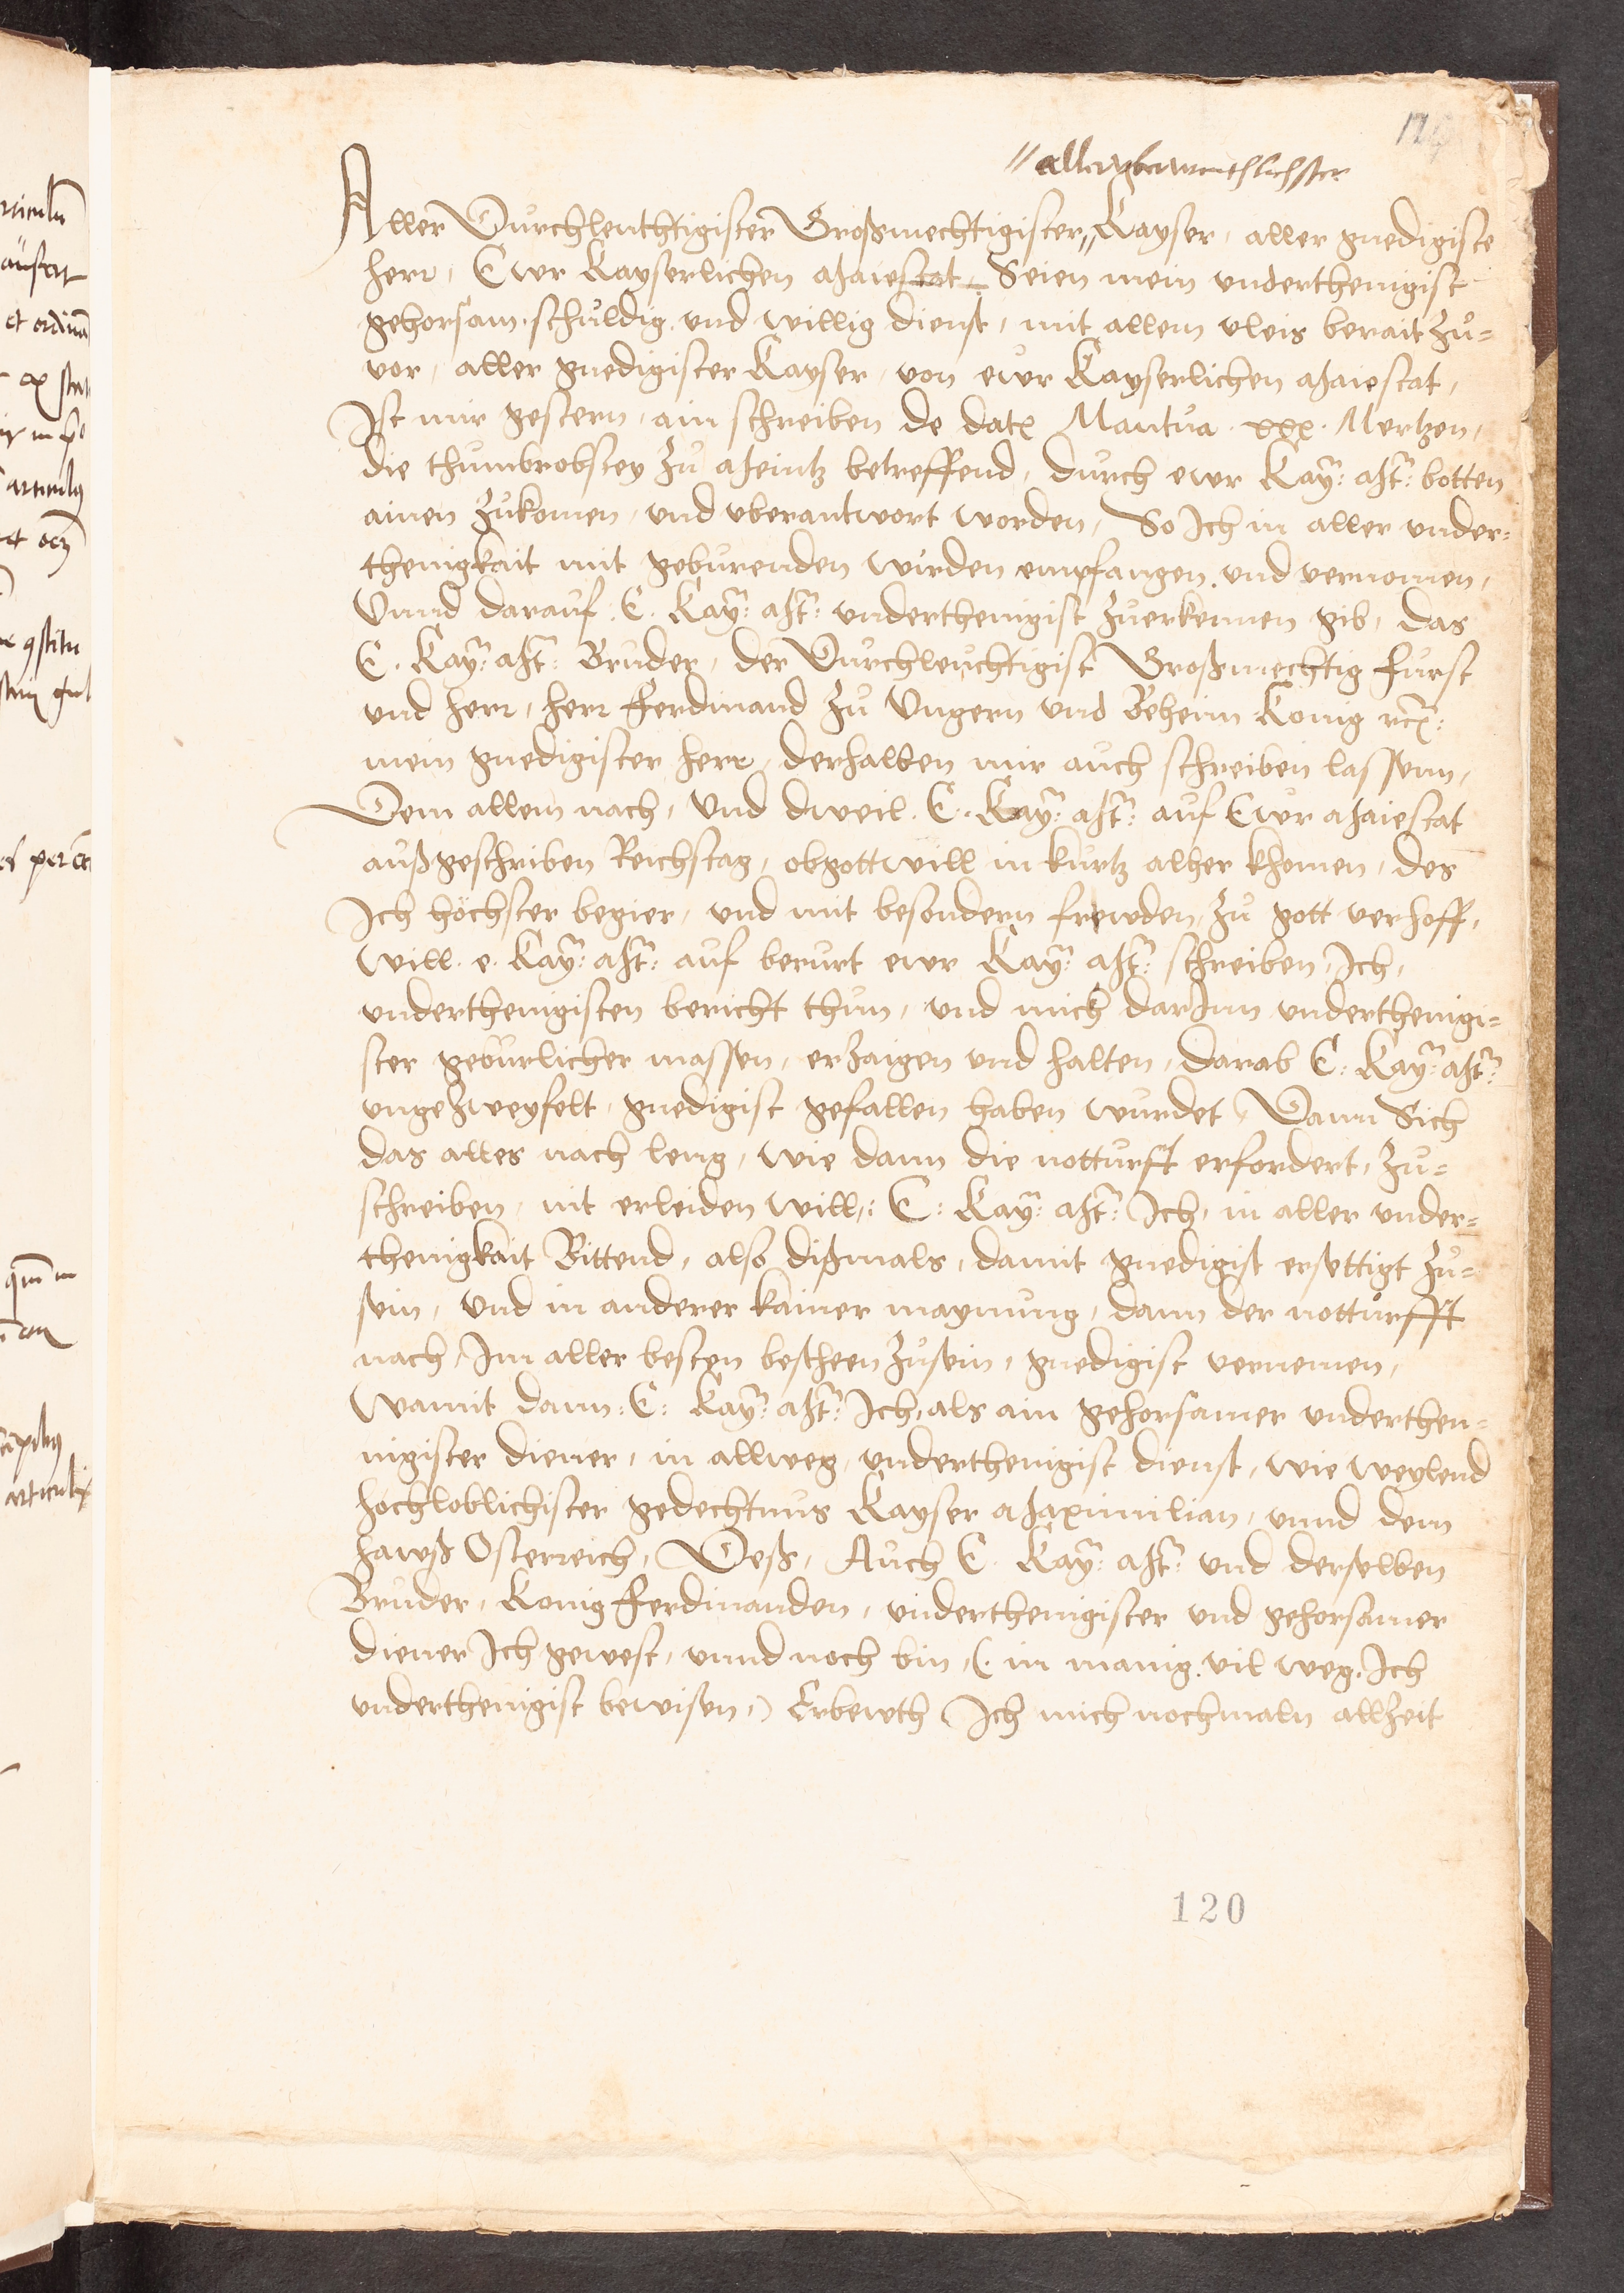 // alleryberwinthlichster
Aller Durchleuchtigister Großmechtigister // Kayser, aller gnedigiste
herr, Ewr Kayserlichen Maiestat, Seien mein underthenigist
gehorsam schuldig und willig dienst, mit allem vleis berait zů=
vor, aller gnedigister Kayser, von ewr Kayserlichen Maiestat,
Ist mir gestern, ain schreiben de dato Mantua xxx. Mertzen,
die thumbrobstey zů Meintz betreffend, durch ewr Kay: Mt: botten
ainen zůkomen, und uberantwort worden, So Ich in aller under=
thenigkait mit geburenden wirden empfangen und vernomen,
Vnnd darauf E. Kay: Mt: underthenigist zůerkennen gib, das
E. Kay: Mt: Bruder, der Durchleuchtigist Großmechtig furst
und herr, herr Ferdinand zů Ungern und Beheim Konig rc:
mein gnedigister herr, derhalben mir auch schreiben lassenn,
Dem allem nach, Und dweil E. Kay: Mt: auf Ewr Maiestat
außgeschriben Reichstag, obgottwill in kurtz alher khomen, des
Ich höchster begier, und mit besondern frewden, zů gott verhoff,
will e. Kay: Mt: auf berurt ewr Kay: Mt: schreiben, Ich,
underthenigisten bericht thun, und mich darInn underthenigi=
ster geburlicher massen, erzaigen und halten, darab E: Kay: Mt:
ungezweyfelt, gnedigist gefallen haben wurdet, Dann Sich
das alles nach leng, wie dann die notturft erfordert, zů=
schreiben, nit erleiden will,: E: Kay: Mt: Ich, in aller under=
thenigkait Bittend, also dißmals, damit gnedigist ersettigt zů=
sein, Und in anderer kainer maynung, dann der notturfft
nach, Im aller besten bescheen zůsein, gnedigist vernemen,
Wamit dann: E: Kay: Mt: Ich, als ain gehorsamer underthen=
nigister diener, in allweg, underthenigist dienst, wie weylend
hochloblichister gedechtnus Kayser Maximilian, unnd dem
hawß Osterreich, Deß, Auch E. Kay: Mt: und derselben
Bruder, Konig Ferdinanden, underthenigister und gehorsamer
diener Ich gewest, unnd noch bin, (in manig vil weg, Ich
underthenigist bewisen,) Erbewth Ich mich nochmaln allzeit
120